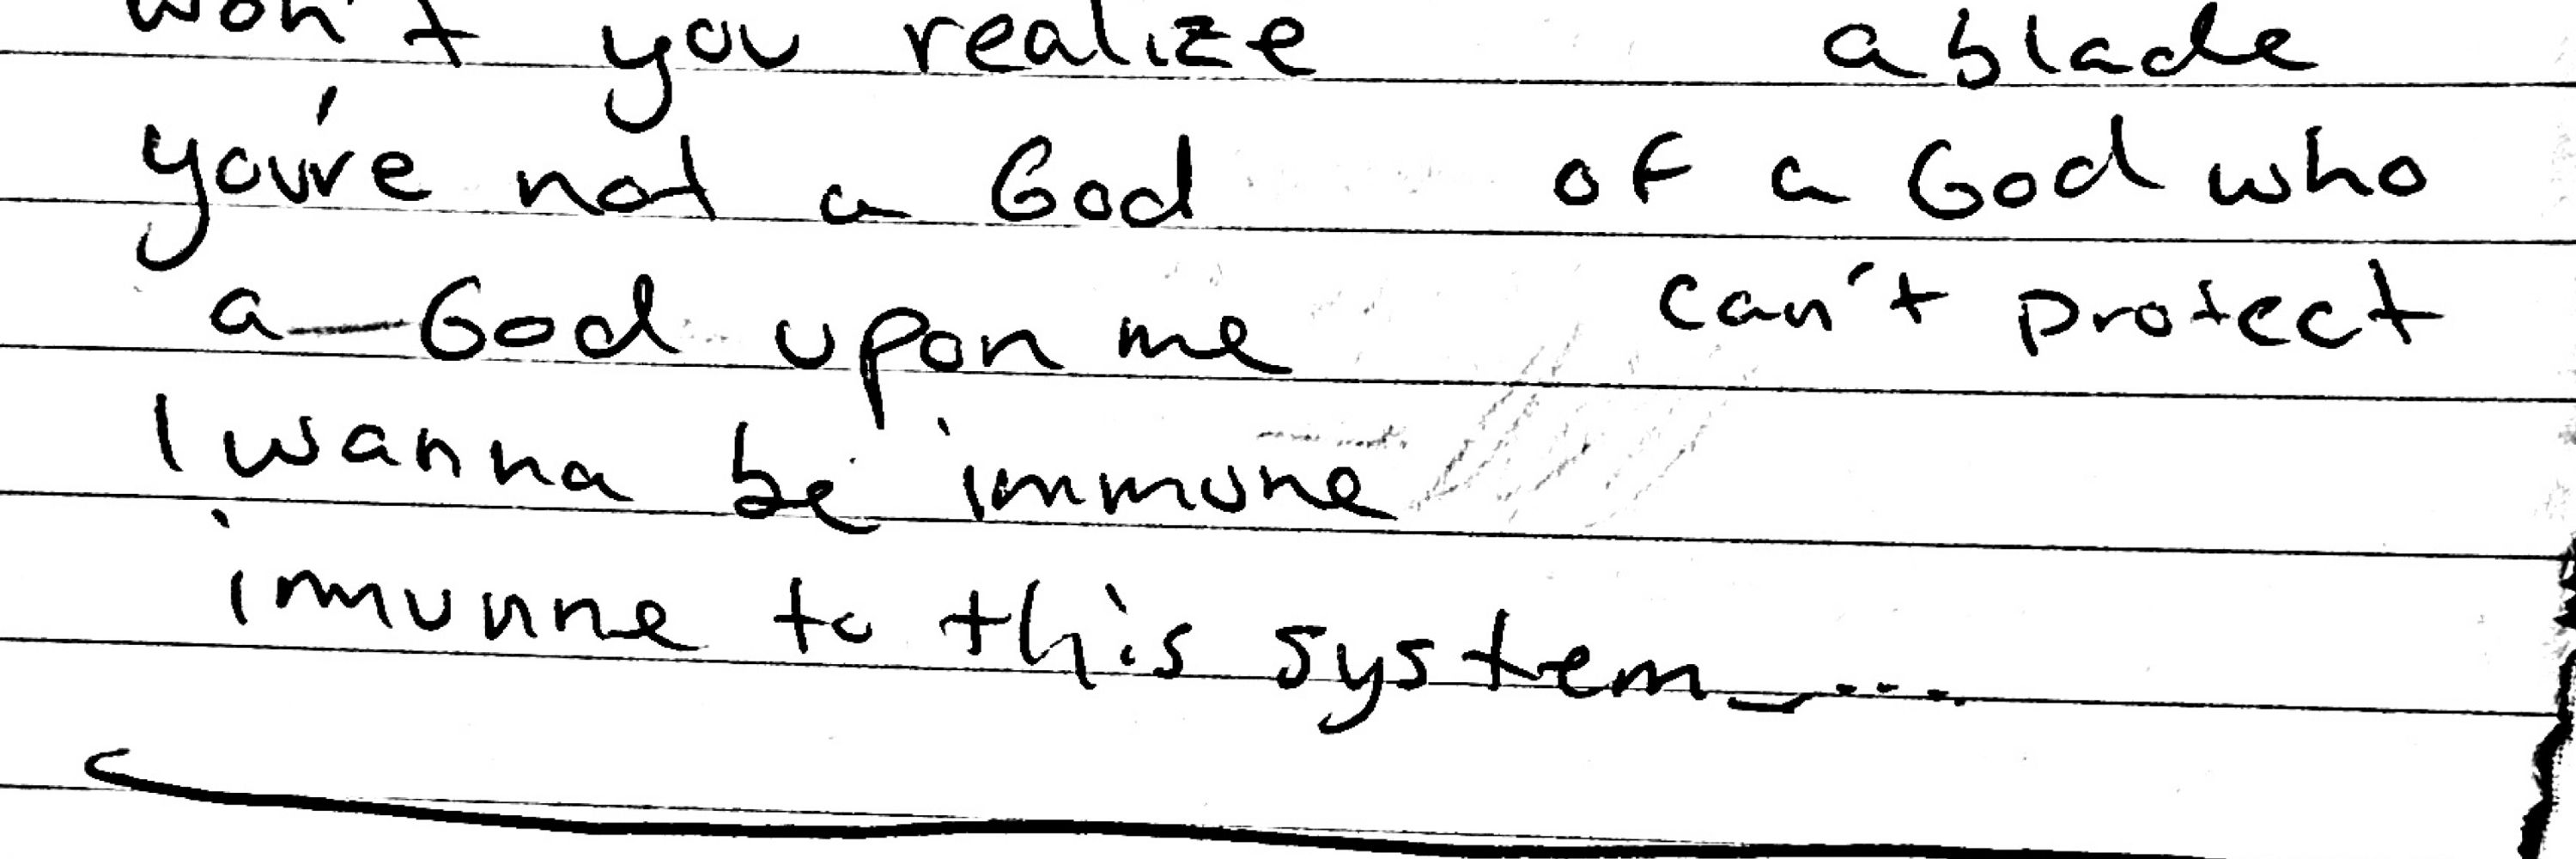 won't you realize
you're not a God
a God upon me
I wanna be immune
immunne to this system_...
a blade
of a God who
can't protect